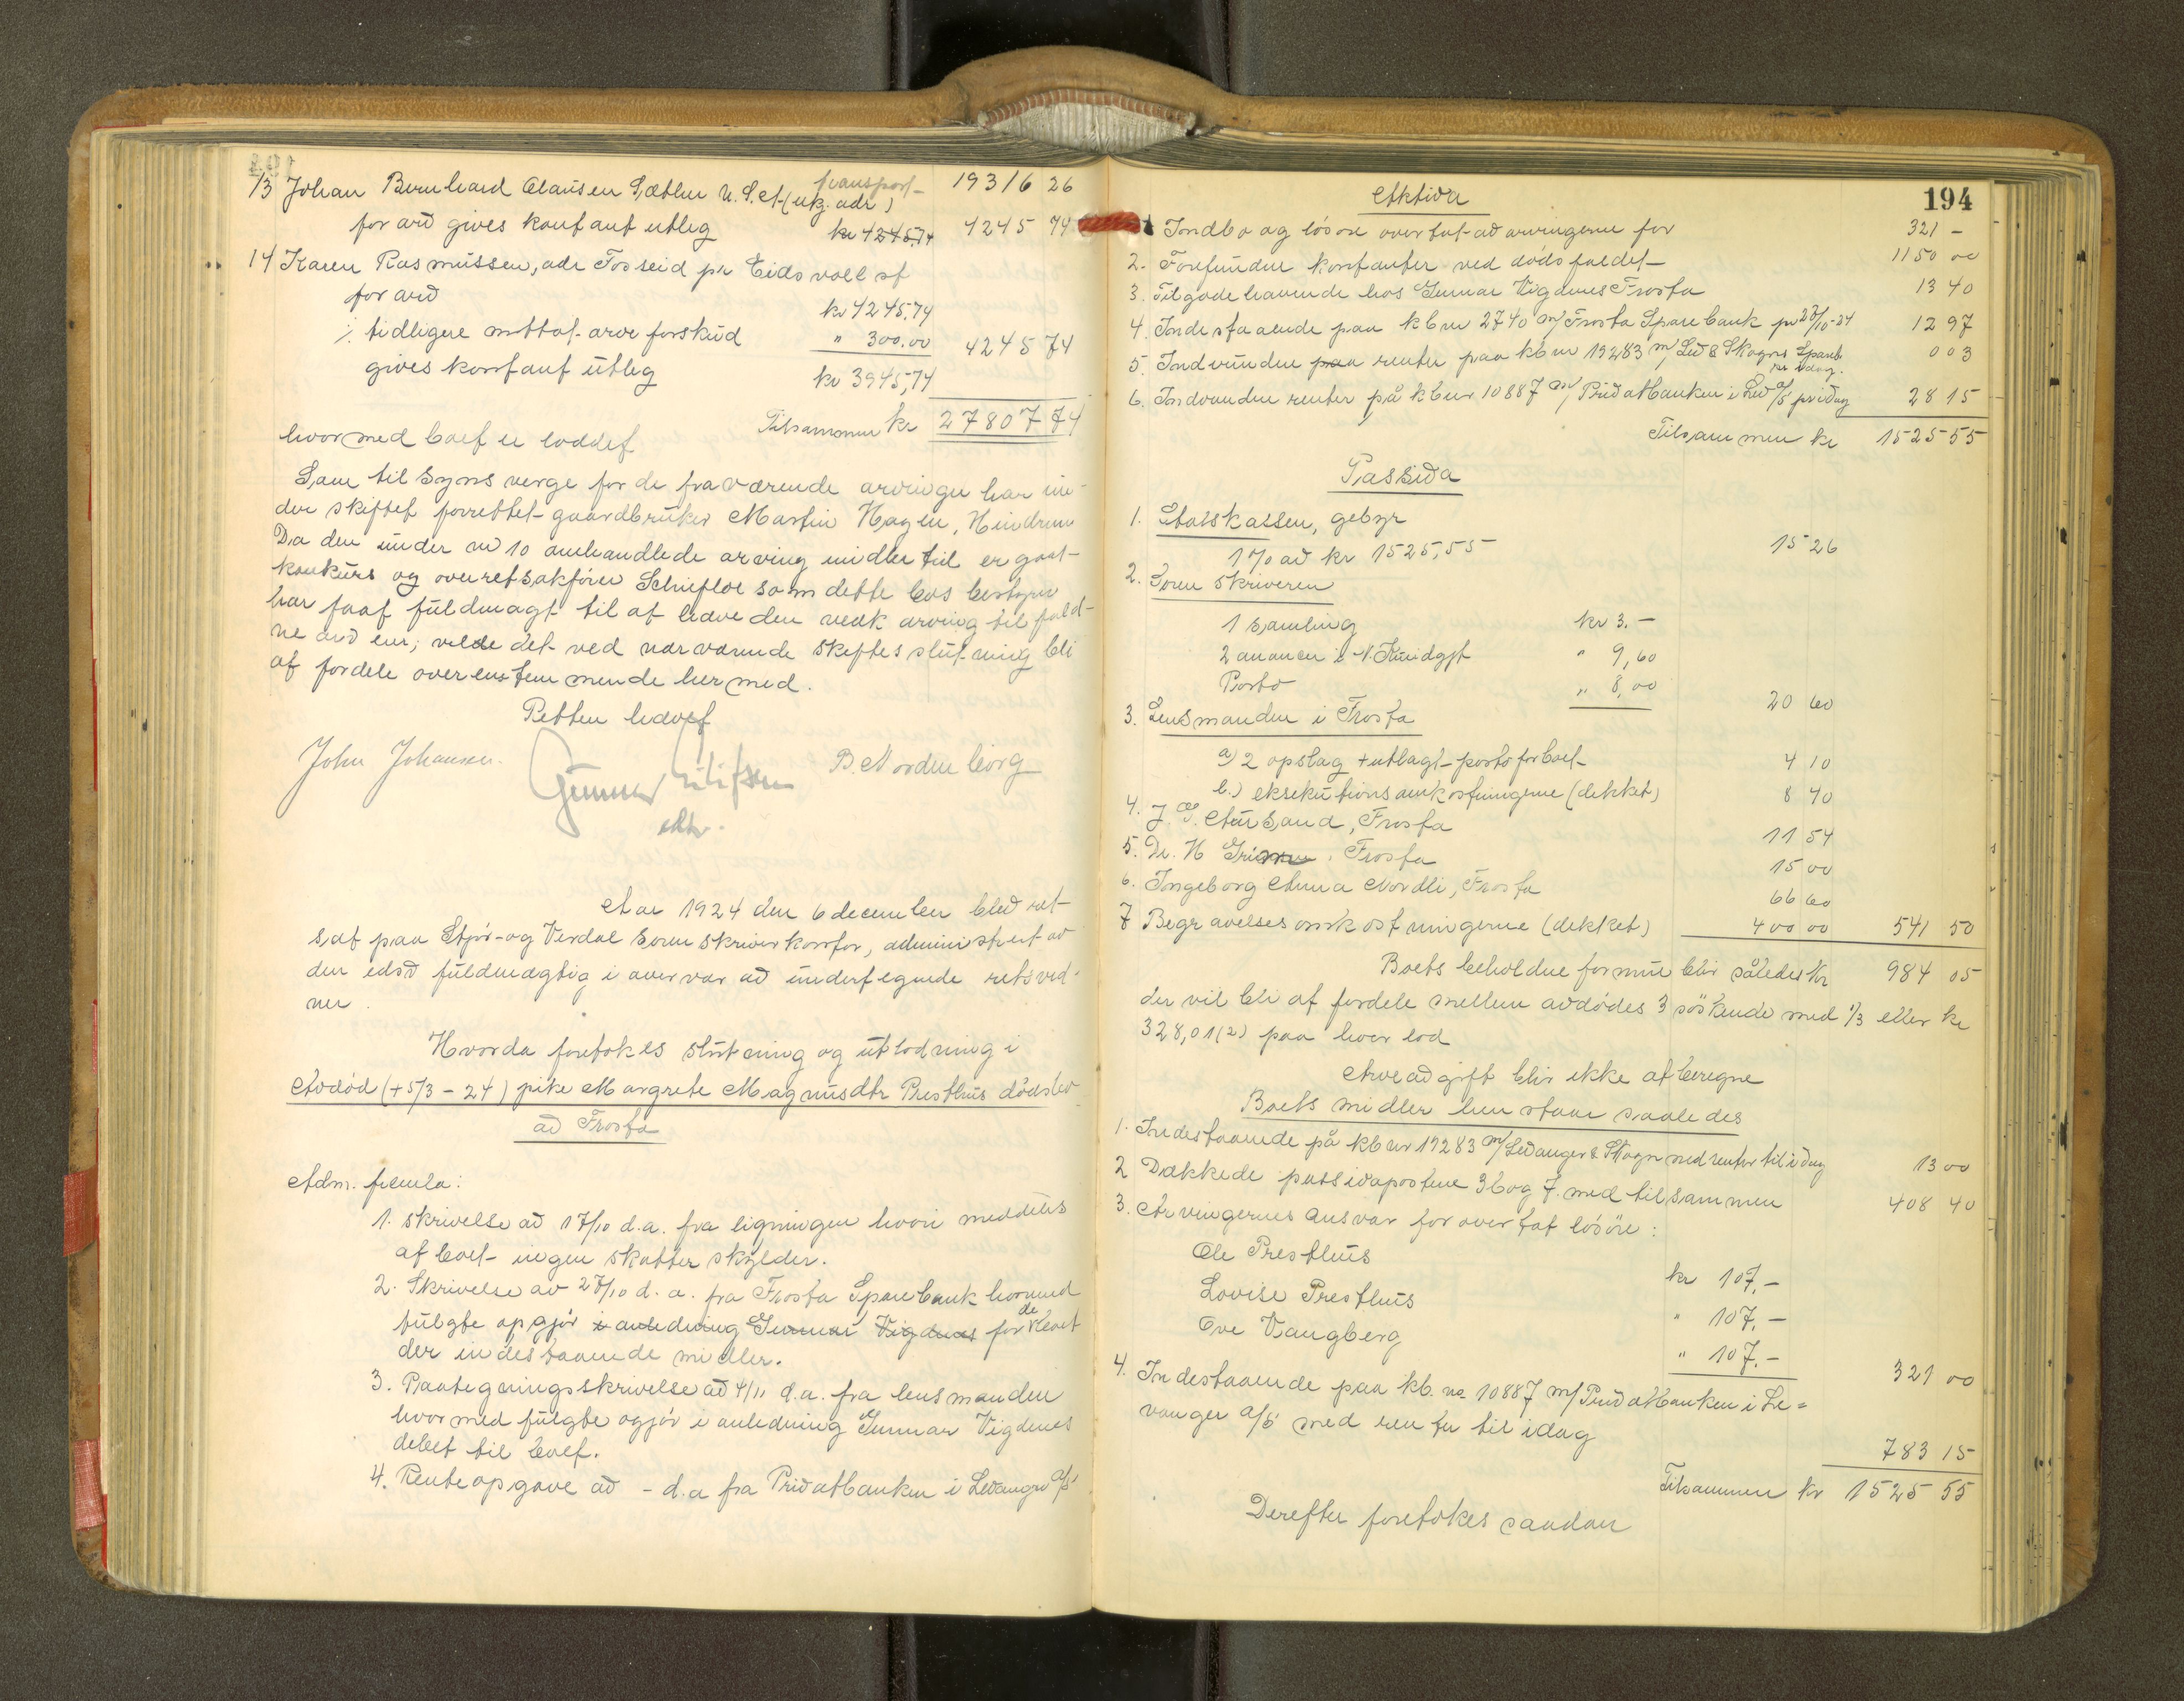 13 Johan Bernhard Clausen Sæther U.S.A (ukj. adr)
transport 19316 26
for arv gives kontant utlæg kr 4245,74 4245 74
14 Karen Rasmussen, adr Fosseid pr Eidsvoll st
for arv kr 4245,74
÷ tidligere mottat arveforskud " 300.00 4245 74
gives kontant utlæg kr 3945,74
Tilsammen kr 27807 74
hvormed boet er loddet
Som tilsynsverge for de fraværende arvinger har un-
der skiftet forrettet gaardbruker Martin Hagen, Hindrum
Da den under nr 10 omhandlede arving imidlertid er gaat
konkurs og overretsakfører Schiefloe som dette bos bestyrer
har faat fuldmagt til at hæve den vedk arving tilfald-
ne arv vilde det ved nærværende skiftesslutning bli
at fordele overenstemmende hermed.
Retten hævet
John Johansen. Gunnar B. Nordenborg
Aar 1924 den 6 december blev ret
sat paa Stjør- og Verdal sorenskriverkontor, administrert av
den edsv fuldmægtig i overvær av undertegnede retsvid-
ner.
Hvorda foretokes slutning og utlodning i
Avdød (+ 5/3 - 24) pike Margrete Magnusdtr Presthus dødsbo
av Frosta
Adm. fremla:
1. Skrivelse av 17/10 d.a. fra ligningen hvori meddeles
at boet ingen skatter skylder.
2. Skrivelse av 27/10 d.a. fra Frosta Sparebank hvormed
fulgte opgjør i anledning Gunnar Vigdenes for de boet
der indestaaende midler.
3. Paategningsskrivelse av 4/11 d.a. fra lensmanden
hvormed fulgte opgjør i anledning Gunnar Vigdenes
debet til boet.
4. Renteopgave av - d.a fra Privatbanken i Levanger A/S
194
Aktiva
1 Indbo og løsøre overtat av arvingerne for 321 -
2. Forefundne kontanter ved dødsfaldet 1150 00
3. Tilgodehavende hos Gunnar Vigdenes Frosta 13 40
4. Indestaaende paa kb nr 2740 m/ Frosta Sparebank pr 27/10-24 12 97
5. Indvundne paa renter paa kb nr 19283 m/ Lev & Skogns Spareb. pr idag. 0 03
6. Indvundne renter på kb nr 10887 m/ Privatbanken i Lev A/S pr idag 28 15
Tilsammen kr 1525 55
Passiva
1. Statskassen, gebyr
1 % av kr 1525,55 15 26
2. Sorenskriveren
1 samling kr 3.-
2 anoncer i N. Kundgjt " 9,60
Porto " 8,00 20 60
3. Lensmanden i Frosta
a) 2 opslag + utlagt porto for boet 4 10
b.) eksekutionsomkostningerne (dekket) 8 40
4. J. G. Aursand, Frosta 11 54
5. Dr. H Frosta 15 00
6. Ingeborg Anna Nordli, Frosta 66 60
7 Begravelsesomkostningerne (dekket) 400 00 541 50
Boets beholdne formue blir således kr 984 05
der vil bli at fordele mellem avdødes 3 søskende med 1/3 eller kr
328,01(2) paa hver lod
Arveavgift blir ikke at beregne
Boets midler henstaar saaledes
1. Indestaaende på kb nr 19283 m/ Levanger & Skogn med renter til idag 13 00
2 Dækkede passivapostene 3b og 7. med tilsammen 408 40
3. Arvingernes ansvar for overtat løsøre:
Ole Presthus kr 107,-
Lovise Presthus " 107,-
Ove Vangberg " 107.- 321 00
4. Indestaaende paa kb. no. 10887 m/ Privatbanken i Le=
vanger A/S med renter til idag 783 15
Tilsammen kr 1525 55
Derefter foretokes saadan